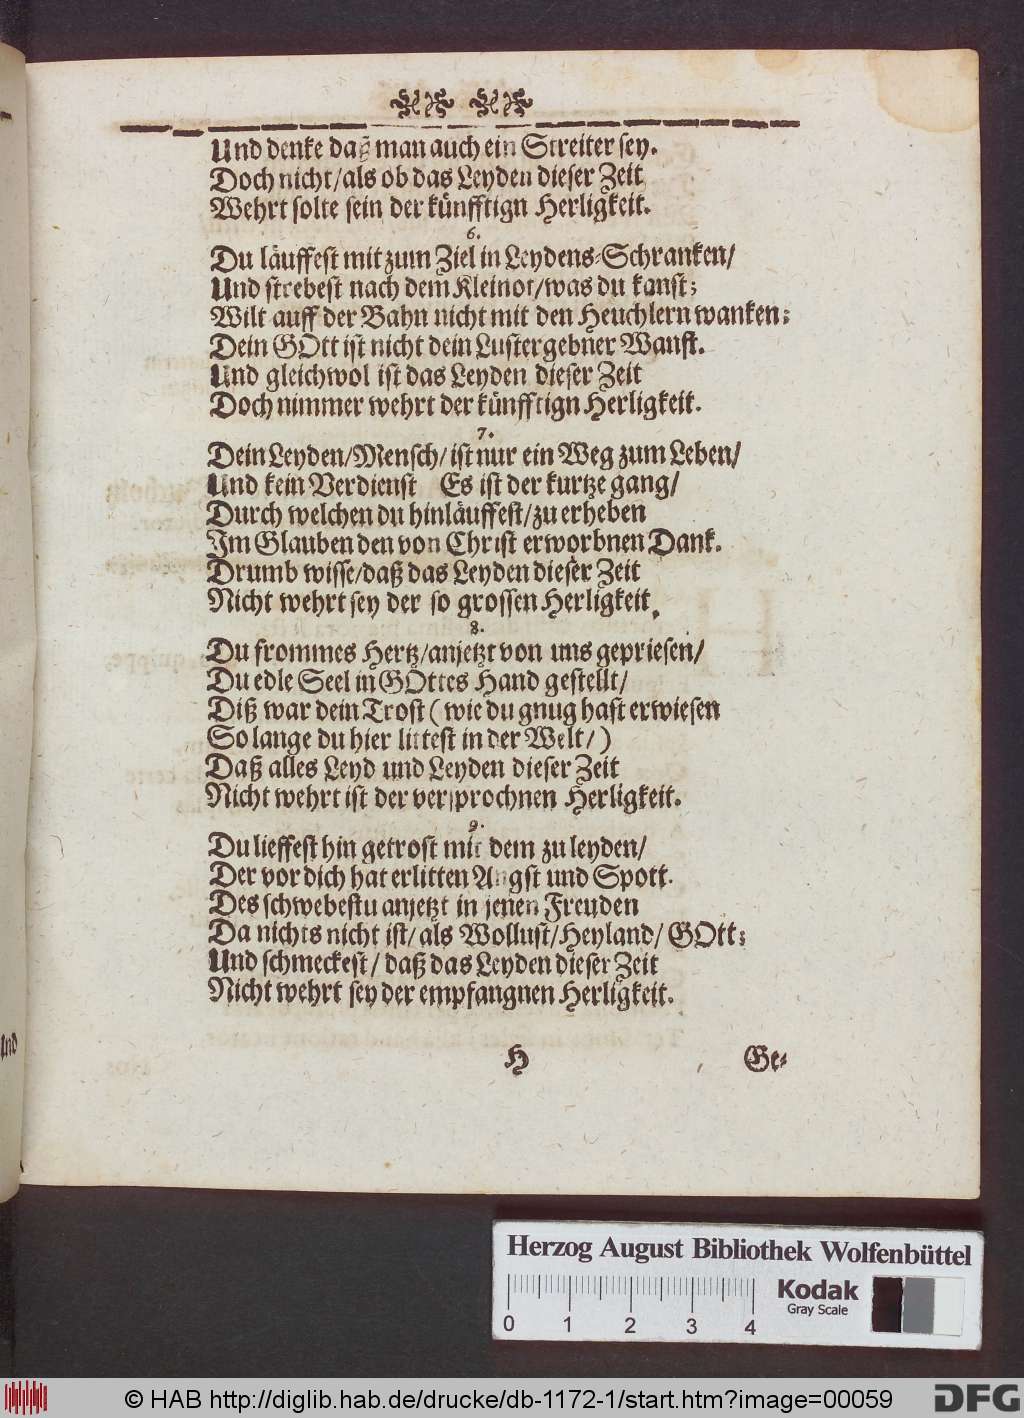 Und denke daß man auch ein Streiter sey.
Doch nicht/als ob das Leyden dieser Zeit
Wehrt solte sein der künfftign Herligkeit.
6.
Du läuffest mit zum Ziel in Leydens-Schranken/
Und strebest nach dem Kleinot/was du kanst;
Wilt auff der Bahn nicht mit den Heuchlern wanken;
Dein GOtt ist nicht dein Lustergebner Wanst.
Und gleichwol ist das Leyden dieser Zeit
Doch nimmer wehrt der künfftign Herligkeit.
7.
Dein Leyden/Mensch/ist nur ein Weg zum Leben/
Und kein Verdienst Es ist der kurtze gang/
Durch welchen du hinläuffest/zu erheben
Im Glauben den von Christ erworbnen Dank.
Drumb wisse/daß das Leyden dieser Zeit
Nicht wehrt sey der so grossen Herligkeit.
8.
Du frommes Hertz/anjetzt von uns gepriesen/
Du edle Seel in GOttes Hand gestellt/
Diß war dein Trost (wie du gnug hast erwiesen
So lange du hier littest in der Welt/)
Daß alles Leyd und Leyden dieser Zeit
Nicht wehrt ist der versprochnen Herligkeit.
9.
Du lieffest hin getrost mit dem zu leyden/
Der vor dich hat erlitten Angst und Spott.
Des schwebestu anjetzt in jenen Freuden
Da nichts nicht ist/als Wollust/Heyland/GOtt;
Und schmeckest/daß das Leyden dieser Zeit
Nicht wehrt sey der empfangnen Herligkeit.
H Ge-
und
Herzog August Bibliothek Wolfenbüttel
Kodak
Gray Scale
0 1 2 3 4
© HAB http://diglib.hab.de/drucke/db-1172-1/start.htm?image=00059
DFG